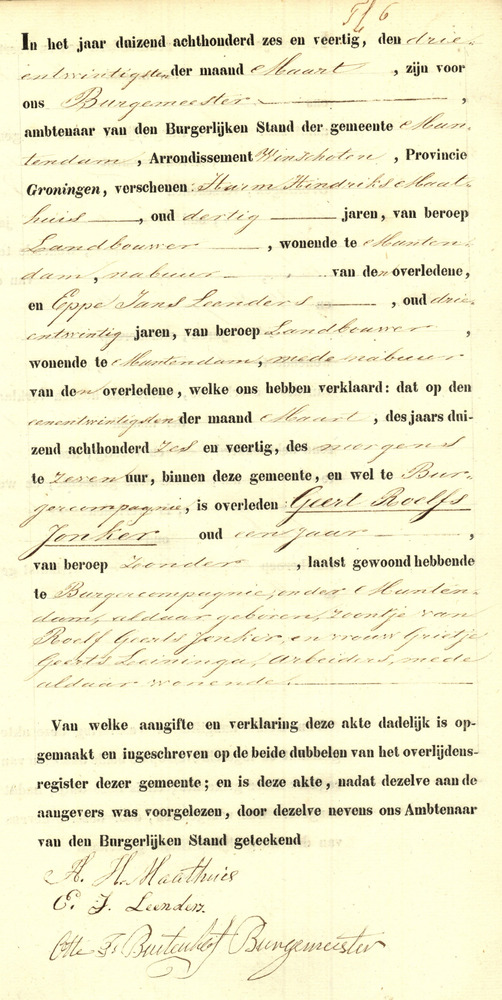 6
In het jaar duizend achthonderd zes en veertig, den drie-
entwintigsten der maand Maart, zijn voor
ons Burgemeester,
ambtenaar van den Burgerlijken Stand der gemeente Mun-
tendam, Arrondissement Winschoten, Provincie
Groningen, verschenen: Harm Hindriks Maat-
huis, oud dertig jaren, van beroep
Landbouwer, wonende te Munten-
dam, nabuur van den overledene,
en Eppe Jans Leenders, oud drie-
entwintig jaren, van beroep Landbouwer,
wonende te Muntendam, mede nabuur
van den overledene, welke ons hebben verklaard: dat op den
eenentwintigsten der maand Maart, des jaars dui-
zend achthonderd zes en veertig, des morgens
te zeven uur, binnen deze gemeente, en wel te Bur-
gercompagnie, is overleden Geert Roelfs
Jonker oud een jaar,
van beroep zonder, laatst gewoond hebbende
te Burgercompagnie, onder Munten-
dam, aldaar geboren, zoontje van
Roelf Geerts Jonker, en vrouw Grietje
Geerts Leininga, Arbeiders, mede
aldaar wonende.
Van welke aangifte en verklaring deze akte dadelijk is op-
gemaakt en ingeschreven op de beide dubbelen van het overlijdens-
register dezer gemeente; en is deze akte, nadat dezelve aan de
aangevers was voorgelezen, door dezelve nevens ons Ambtenaar
van den Burgerlijken Stand geteekend
H. H. Maathuis
E. J. Leenders
Otto Js Buitenhof Burgemeister